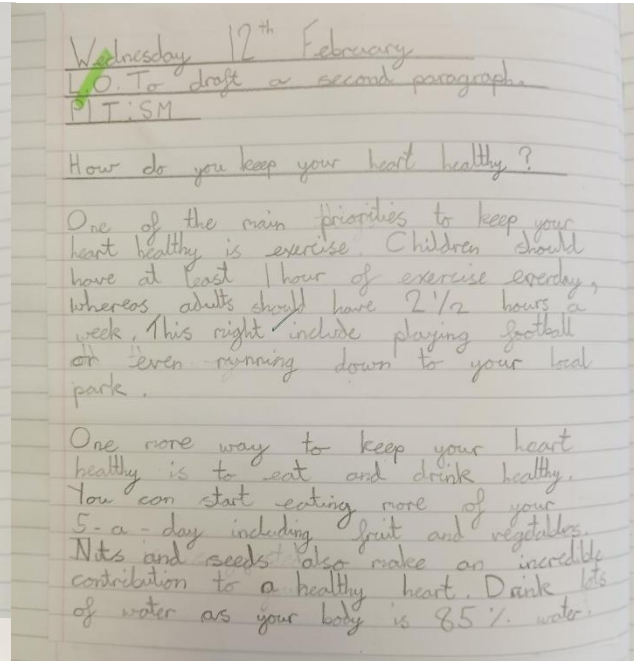 Wednesday 12th February
L.O. To draft a second paragraph.
MT: SM
How do you keep your heart healthy?
One of the main priorities to keep your
heart healthy is exercise. Children should
have at least 1 hour of exercise everday,
whereas adults should have 2 1/2 hours a
week. This might include playing football
or even running down to your local
park.
One more way to keep your heart
healthy is to eat and drink healthy.
You can start eating more of your
5-a-day including fruit and vegetables.
Nuts and seeds also make an incredible
contribution to a healthy heart. Drink lots
of water as your body is 85% water.